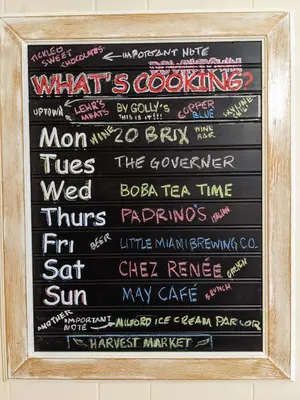 TICKLED SWEET CHOCOLATES ← IMPORTANT NOTE
DOWNTOWN
WHAT'S COOKING?
UPTOWN ← LEHR'S MEATS BY GOLLY'S THIS IS IT!!! COPPER BLUE SKYLINE
Mon WINE 20 BRIX WINE BAR
Tues THE GOVERNER
Wed BOBA TEA TIME
Thurs PADRINO'S ITALIAN
Fri BEER LITTLE MIAMI BREWING CO.
Sat CHEZ RENÉE BRUNCH
Sun MAY CAFÉ BRUNCH
ANOTHER IMPORTANT NOTE → MILFORD ICE CREAM PARLOR
HARVEST MARKET